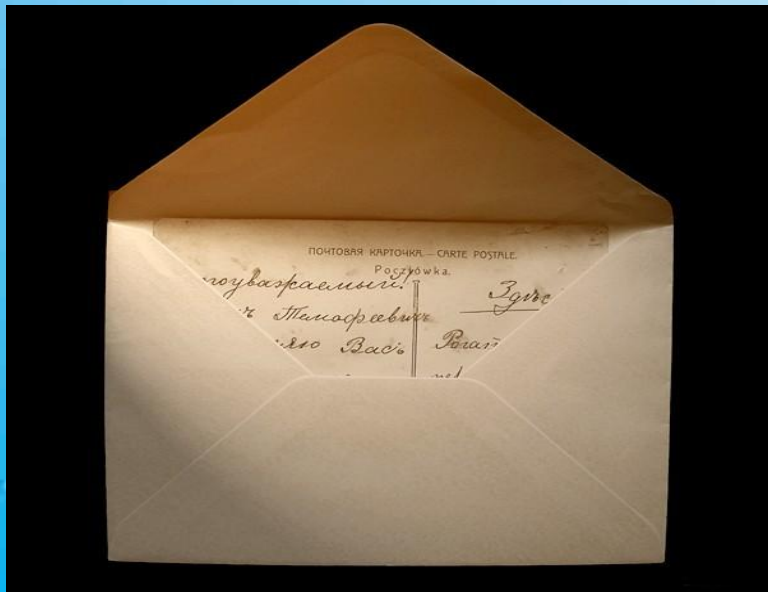 ПОЧТОВАЯ КАРТОЧКА. — CARTE POSTALE.
Pocztówka.
ноуважаемый!
ъ Тимофеевичъ
ляю Васъ
Здѣс
Рогат